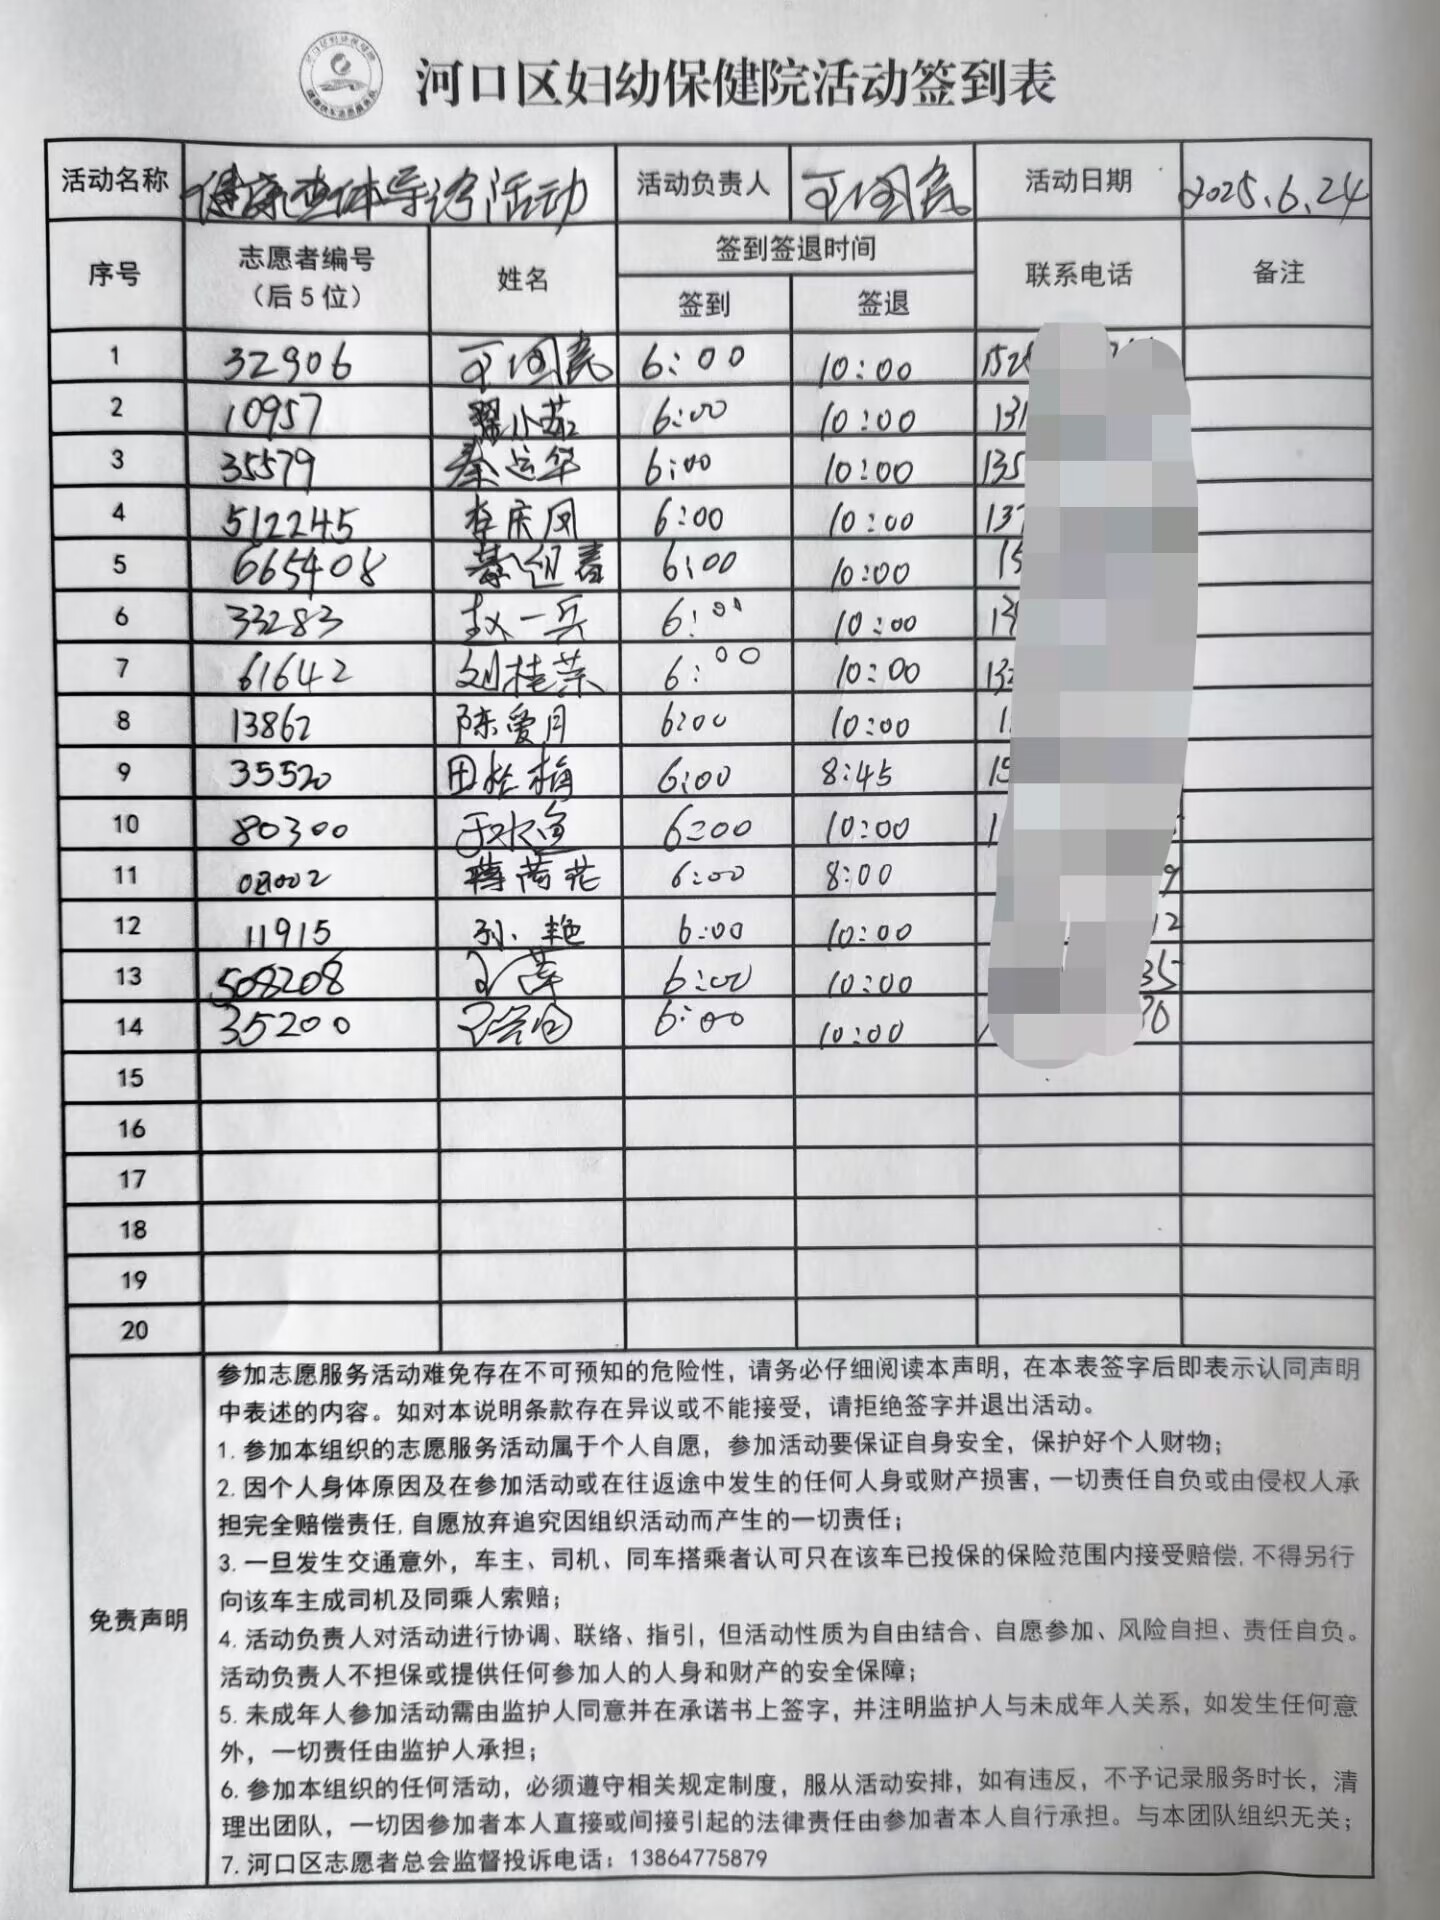 河口区妇幼保健院活动签到表
活动名称 健康查体导诊活动 活动负责人 国民 活动日期 2025.6.24
序号 志愿者编号（后5位） 姓名 签到签退时间 联系电话 备注
签到 签退
1 32906 国民 6:00 10:00 152
2 10957 翟小茹 6:00 10:00 131
3 35579 秦运华 6:00 10:00 135
4 512245 李庆凤 6:00 10:00 137
5 665408 组春 6:00 10:00 15
6 33283 赵一兵 6:00 10:00
7 61642 刘桂荣 6:00 10:00 132
8 13862 陈爱月 6:00 10:00 1
9 35520 田松梅 6:00 8:45 15
10 80300 于水鱼 6:00 10:00 1
11 6:00 8:00 9
12 11915 孙艳 6:00 10:00 12
13 508208 王萍 6:00 10:00 35
14 35200 6:00 10:00
15
16
17
18
19
20
免责声明
参加志愿服务活动难免存在不可预知的危险性，请务必仔细阅读本声明，在本表签字后即表示认同声明
中表述的内容。如对本说明条款存在异议或不能接受，请拒绝签字并退出活动。
1. 参加本组织的志愿服务活动属于个人自愿，参加活动要保证自身安全，保护好个人财物；
2. 因个人身体原因及在参加活动或在往返途中发生的任何人身或财产损害，一切责任自负或由侵权人承
担完全赔偿责任,自愿放弃追究因组织活动而产生的一切责任；
3. 一旦发生交通意外，车主、司机、同车搭乘者认可只在该车已投保的保险范围内接受赔偿,不得另行
向该车主成司机及同乘人索赔；
4. 活动负责人对活动进行协调、联络、指引，但活动性质为自由结合、自愿参加、风险自担、责任自负。
活动负责人不担保或提供任何参加人的人身和财产的安全保障；
5. 未成年人参加活动需由监护人同意并在承诺书上签字，并注明监护人与未成年人关系，如发生任何意
外，一切责任由监护人承担；
6. 参加本组织的任何活动，必须遵守相关规定制度，服从活动安排，如有违反，不予记录服务时长，清
理出团队，一切因参加者本人直接或间接引起的法律责任由参加者本人自行承担。与本团队组织无关；
7. 河口区志愿者总会监督投诉电话：13864775879